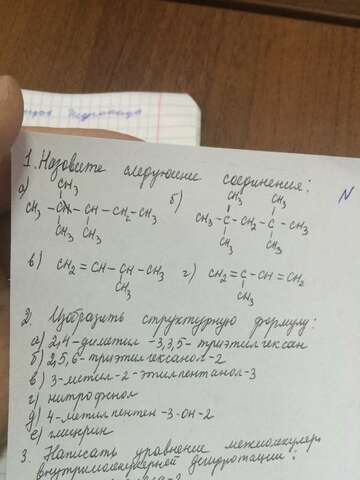 1. Назовите следующие соединения:
а) CH3 б) CH3 CH3
CH3 - CH - CH - CH2 - CH3 CH3 - C - CH2 - C - CH3
CH3 CH3 CH3 CH3
в) CH2 = CH - CH - CH3 г) CH2 = C - CH = CH2
CH3 CH3
2. Изобразить структурную формулу:
а) 2,4-диметил -3,3,5- триэтилгексан
б) 2,5,6- триэтилгексанол-2
в) 3-метил-2-этилпентанол-3
г) нитрофенол
д) 4-метилпентен -3-ол-2
е) глицерин
3. Написать уравнение межмолекуляр
внутримолекулярной дегидротации:
N